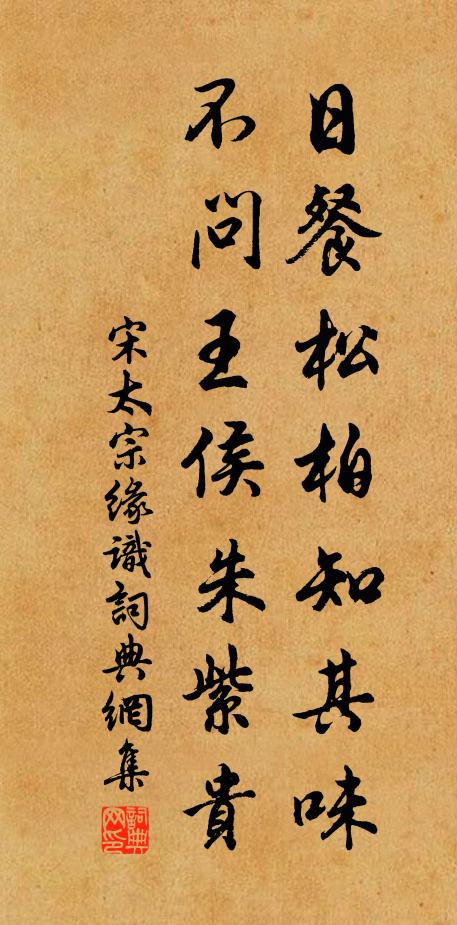 日餐松柏知其味
不問王侯朱紫貴
宋太宗緣識詞典網集
詞典网印